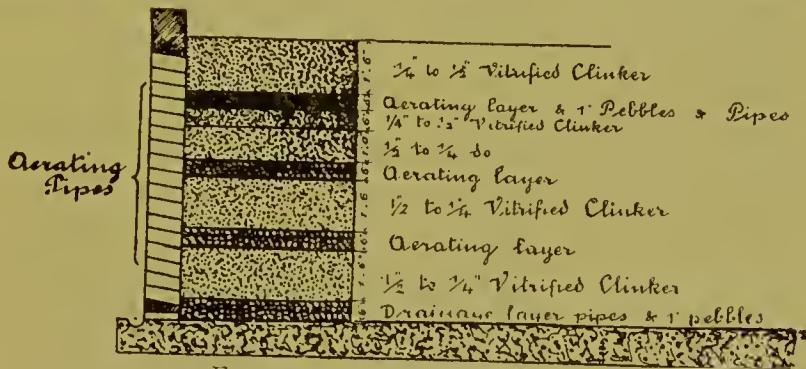 ¼" to ½" Vitrified Clinker
Aerating layer & 1" Pebbles & Pipes
¼" to ½" Vitrified Clinker
½ to ¼ do
Aerating layer
½ to ¼" Vitrified Clinker
Aerating layer
½ to ¼" Vitrified Clinker
Drainage layer pipes & 1" pebbles
Aerating
Pipes